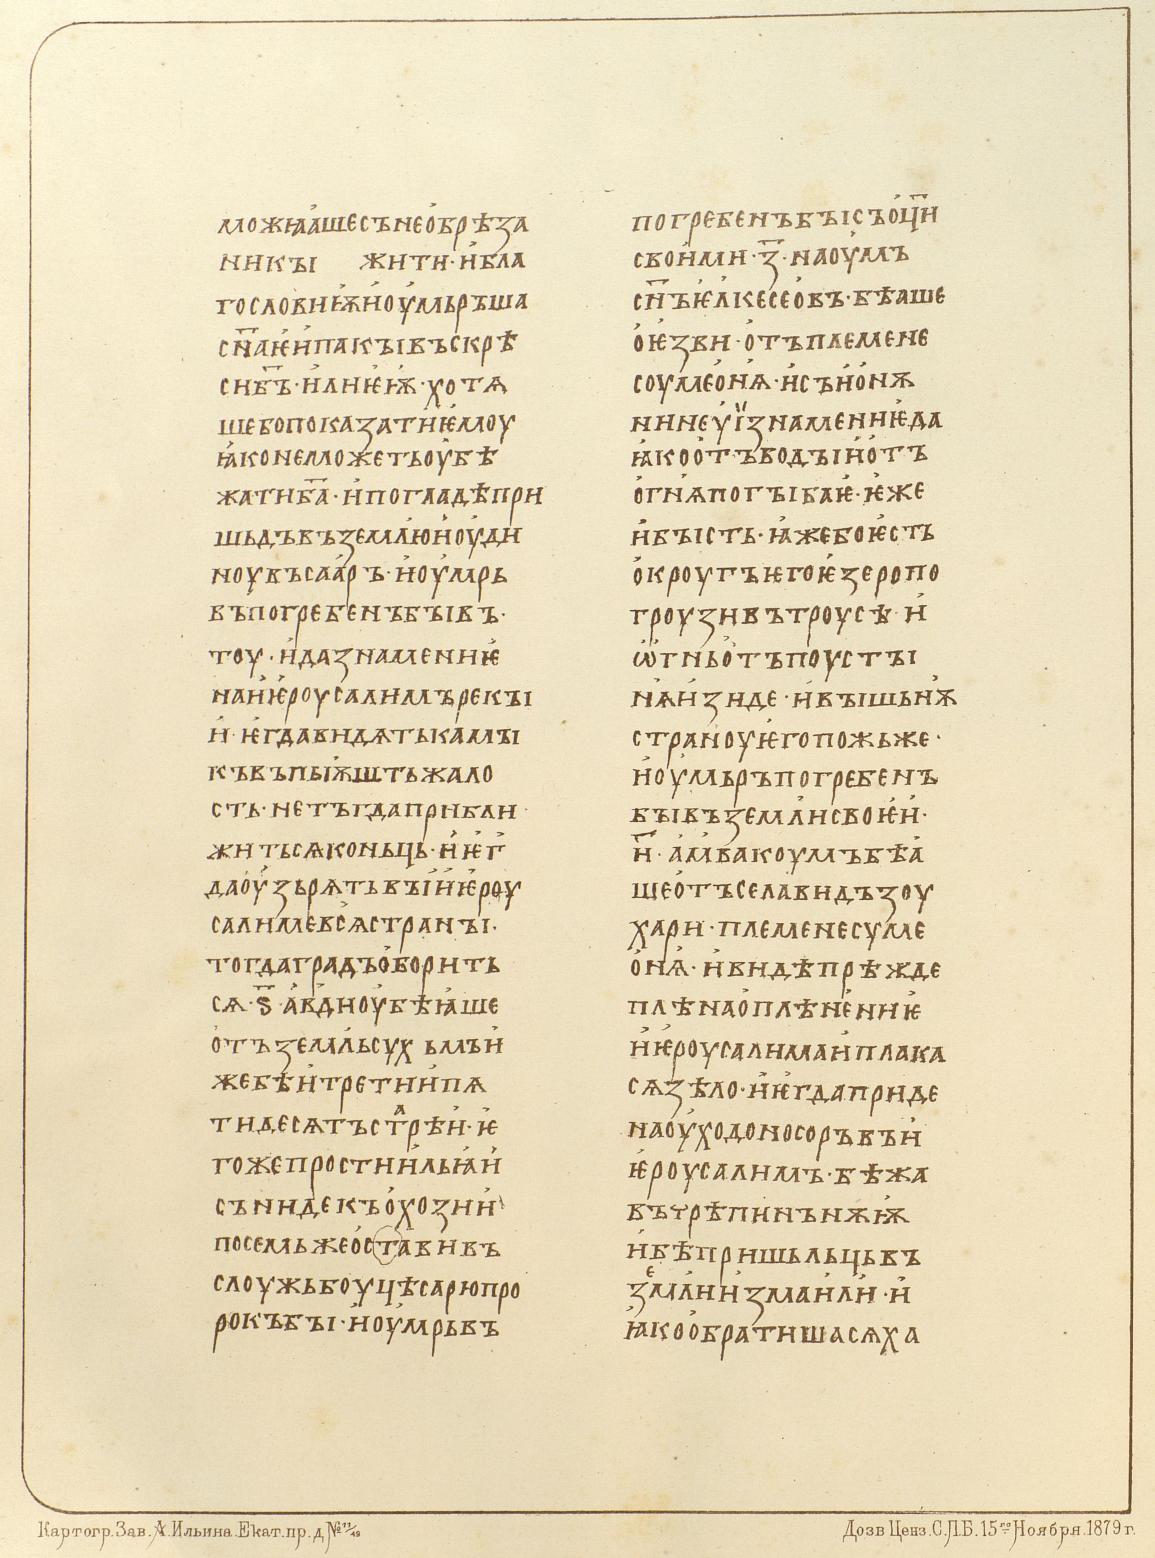 можꙗа́шесънео́брѣза
никꙑ жити·и҆бла
гословиѭи҆оу҆мьръша
сн҃аѥ҆и҆пакꙑвъскрѣ
сиб҃ъ·и҆лиѥ҆ѭ·хотѧ
шебопоказатиѥ҆моу
ꙗ҆конеможетьоу҆бѣ
жатиб҃а·и҆погладѣпри
шьдъвъземл҄юи҆оу҆ди
ноувъсаа҆ръ·и҆оу҆мрь
въпогребенъбꙑвъ·
тоу·и҆дазнамениѥ
наи҆ѥ҆роусалимърекꙑ
и҆·ѥ҆гдавидѧтькамꙑ
къвъпьѭштьжало
сть·нетъгдаприбли
житьсѧконьць·и҆ѥ҆г
даоу҆зьрѧтьвꙑи҆ѥ҆роу
салимевсѧстранꙑ·
тогдаградъо҆борить
сѧ·ѕ҃·а҆вдиоу҆бѣꙗ҆ше
о҆тъземл҄ьсух ьмъи҆
жебѣи҆третиипѧ
тидесѧтъстарѣи҆·ѥ҆
гожепростии҆льꙗи҆
съниде къо҆хозии҆
посемьжео҆ставивъ
слоужьбоуцѣсарюпро
рокъбꙑ·и҆оу҆мрьвъ
погребенъбꙑсъо҆ц҃и
свои҆ми·з҃·наоу҆мъ
сн҃ъѥ҆лкесео҆въ·бѣаше
о҆ѥ҆зви·о҆тъплемене
соумео҆нѧ·и҆съи҆о҆нѫ
нинеуї҆знамениѥда
ꙗ҆коо҆тъводꙑи҆о҆тъ
о҆гнѧпогꙑбаѥ·ѥ҆же
и҆бꙑсть·ꙗ҆жебоѥ҆сть
о҆кроугъѥгоѥ҆зеропо
грoузивътроусѣ·и҆
ѡ҆гньо҆тъпоустꙑ
нѧи҆зиде·и҆вꙑшьнѭ
странoуѥ҆гопожьже·
и҆оу҆мьръпогребенъ
бꙑвъземл҄исвоѥ҆и·
и҃·а҆мвакоумъбѣа҆
шео҆тъселавидъзоу
хари·племенесуме
о҆нѧ·и҆видѣпрѣжде
плѣнао҆плѣнениѥ
и҆ѥ҆роусалимаи҆плака
сѧзѣло·и҆ѥ҆гдаприде
наоу҆ходоносоръвъи҆
ѥ҆роусалимъ·бѣжа
вътрѣпиинънѫѭ
и҆бѣпришьльцьвъ
земл҄ии҆змаил҄и·и҆
ꙗ҆коо҆братишасѧха
Картогр.Зав.А.Ильина.Екат.пр.д.№ 11/49
Дозв Ценз.С.П.Б.15го Ноября.1879г.